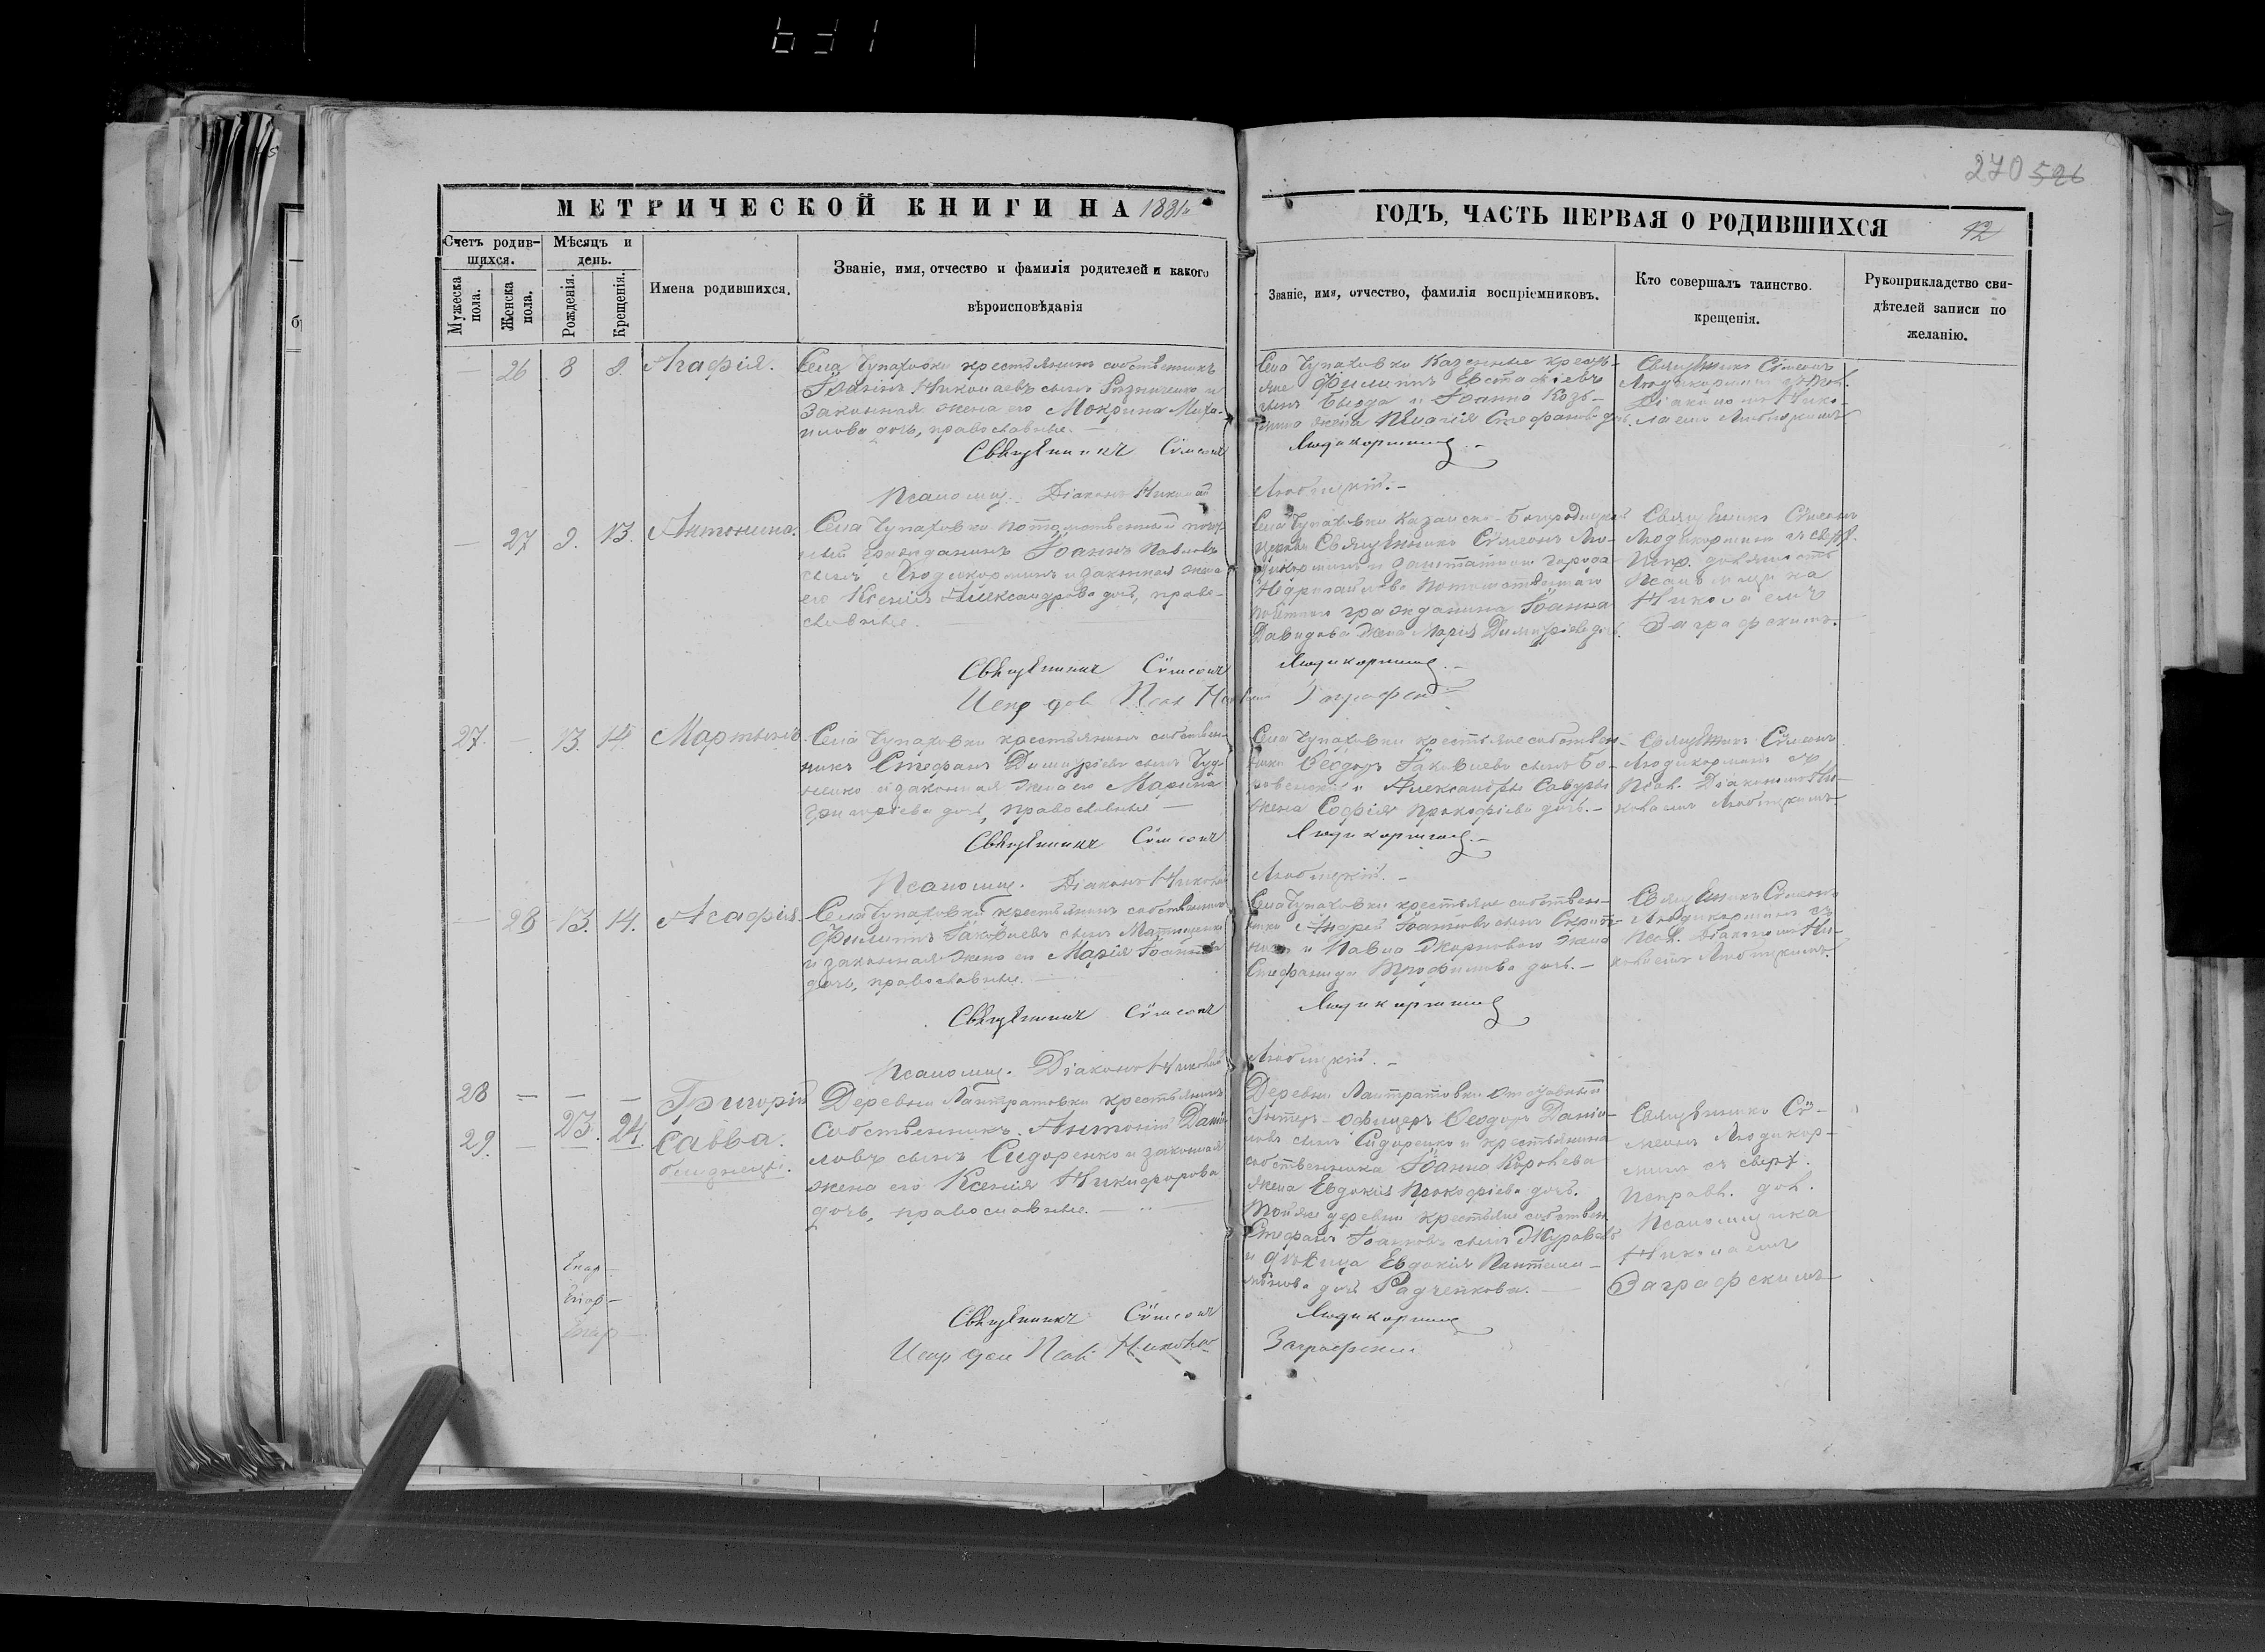 270 526
МЕТРИЧЕСКОЙ КНИГИ НА 1881
ГОДЪ, ЧАСТЬ ПЕРВАЯ О РОДИВШИХСЯ
42
Счетъ родив-
шихся.
Мѣсяцъ и
день.
Мужеска
пола.
Женска
пола.
Рожденія.
Крещенія.
Имена родившихся.
Званіе, имя, отчество и фамилія родителей и какого
вѣроисповѣданія
Званіе, имя, отчество, фамилія воспріемниковъ.
Кто совершалъ таинство
крещенія.
Рукоприкладство сви-
дѣтелей записи по
желанію.
— 26 8 9. Агафія.
Села Чупаховки крестьянинъ собственникъ
Іоаннъ Николаевъ сынъ и
законная жена его Мокрина Миха-
илова дочь, православные. —
Священникъ Сѵмеонъ
Псаломщ. Діаконъ Николай
Села Чупаховки Казенные крестья-
яне Филиппъ Евстафіевъ
сынъ и Іоанна Козь-
жена Пелагія Стефанова доч.
Людикорминъ. —
Любицкій. —
Священникъ Сѵмеонъ
Людикорминъ съ Псал.
Діакономъ Нико-
лаемъ Любицкимъ
— 27 9. 13. Антонина.
Села Чупаховки потомственный почет-
ный гражданинъ Іоаннъ Павловъ
сынъ Людикорминъ и законная жена
его Ксенія Александрова дочь, право-
славные.
Священникъ Сѵмеонъ
Испр дол Псал Николай
Села Чупаховки Казанско-Богородицкой
церкви Священникъ Сѵмеонъ Лю-
дикорминъ и заштатнаго города
Недригайлова потомственнаго
почетнаго гражданина Іоанна
Давидова жена Марія Димитріева доч.
Людикорминъ. —
Заграфскій
Священникъ Сѵмеонъ
Людикорминъ съ сверх.
Испр. должность
Псаломщика
Николаемъ
Заграфскимъ.
27. — 13. 14 Мартинъ.
Села Чупаховки крестьянинъ собствен-
никъ Стефанъ Димитріевъ сынъ
и законная жена его Марина
Григоріева доч, православные —
Священникъ Сѵмеонъ
Псаломщ. Діаконъ Николай
Села Чупаховки крестьяне собствен-
ники Ѳеодоръ Іаковлевъ сынъ
и Александры
жена Софія Прокофіева дочь. —
Людикорминъ. —
Любицкій. —
Священникъ Сѵмеонъ
Людикорминъ съ
Псал. Діакономъ Ни-
колаемъ Любицкимъ
— 28 13. 14. Агафія.
Села Чупаховки крестьянинъ собственникъ
Филиппъ Іаковлевъ сынъ
и законная жена его Марія Іоаннова
дочь, православные. —
Священникъ Сѵмеонъ
Псаломщ. Діаконъ Николай
Села Чупаховки крестьяне собствен-
ники Андрей Іоанновъ сынъ
и Павла жена
Стефанида Трофимова дочь. —
Людикорминъ
Любицкій. —
Священникъ Сѵмеонъ
Людикорминъ съ
Псал. Діакономъ Ни-
колаемъ Любицкимъ.
28 — — — Григорій
29. — 23. 24. Савва.
близнецы.
Деревни Лантратовки крестьянинъ
собственникъ Антоній Дани-
ловъ сынъ Сидоренко и законная
жена его Ксенія Никифорова
дочь, православные. —
Священникъ Сѵмеонъ
Испр дол Псал Николай
Деревни Лантратовки отставный
Унтеръ-Офицеръ Ѳеодоръ Дани-
ловъ сынъ Сидоренко и крестьянина
собственника Іоанна
жена Евдокія Прокофіева дочь.
Той же деревни крестьяне собствен
Стефанъ Іоанновъ сынъ
и дѣвица Евдокія Пантели-
монова доч Радченкова. —
Людикорминъ
Заграфскій
Священникъ Сѵ-
меонъ Людикор-
минъ съ сверх.
Исправл. дол.
Псаломщика
Николаемъ
Заграфскимъ